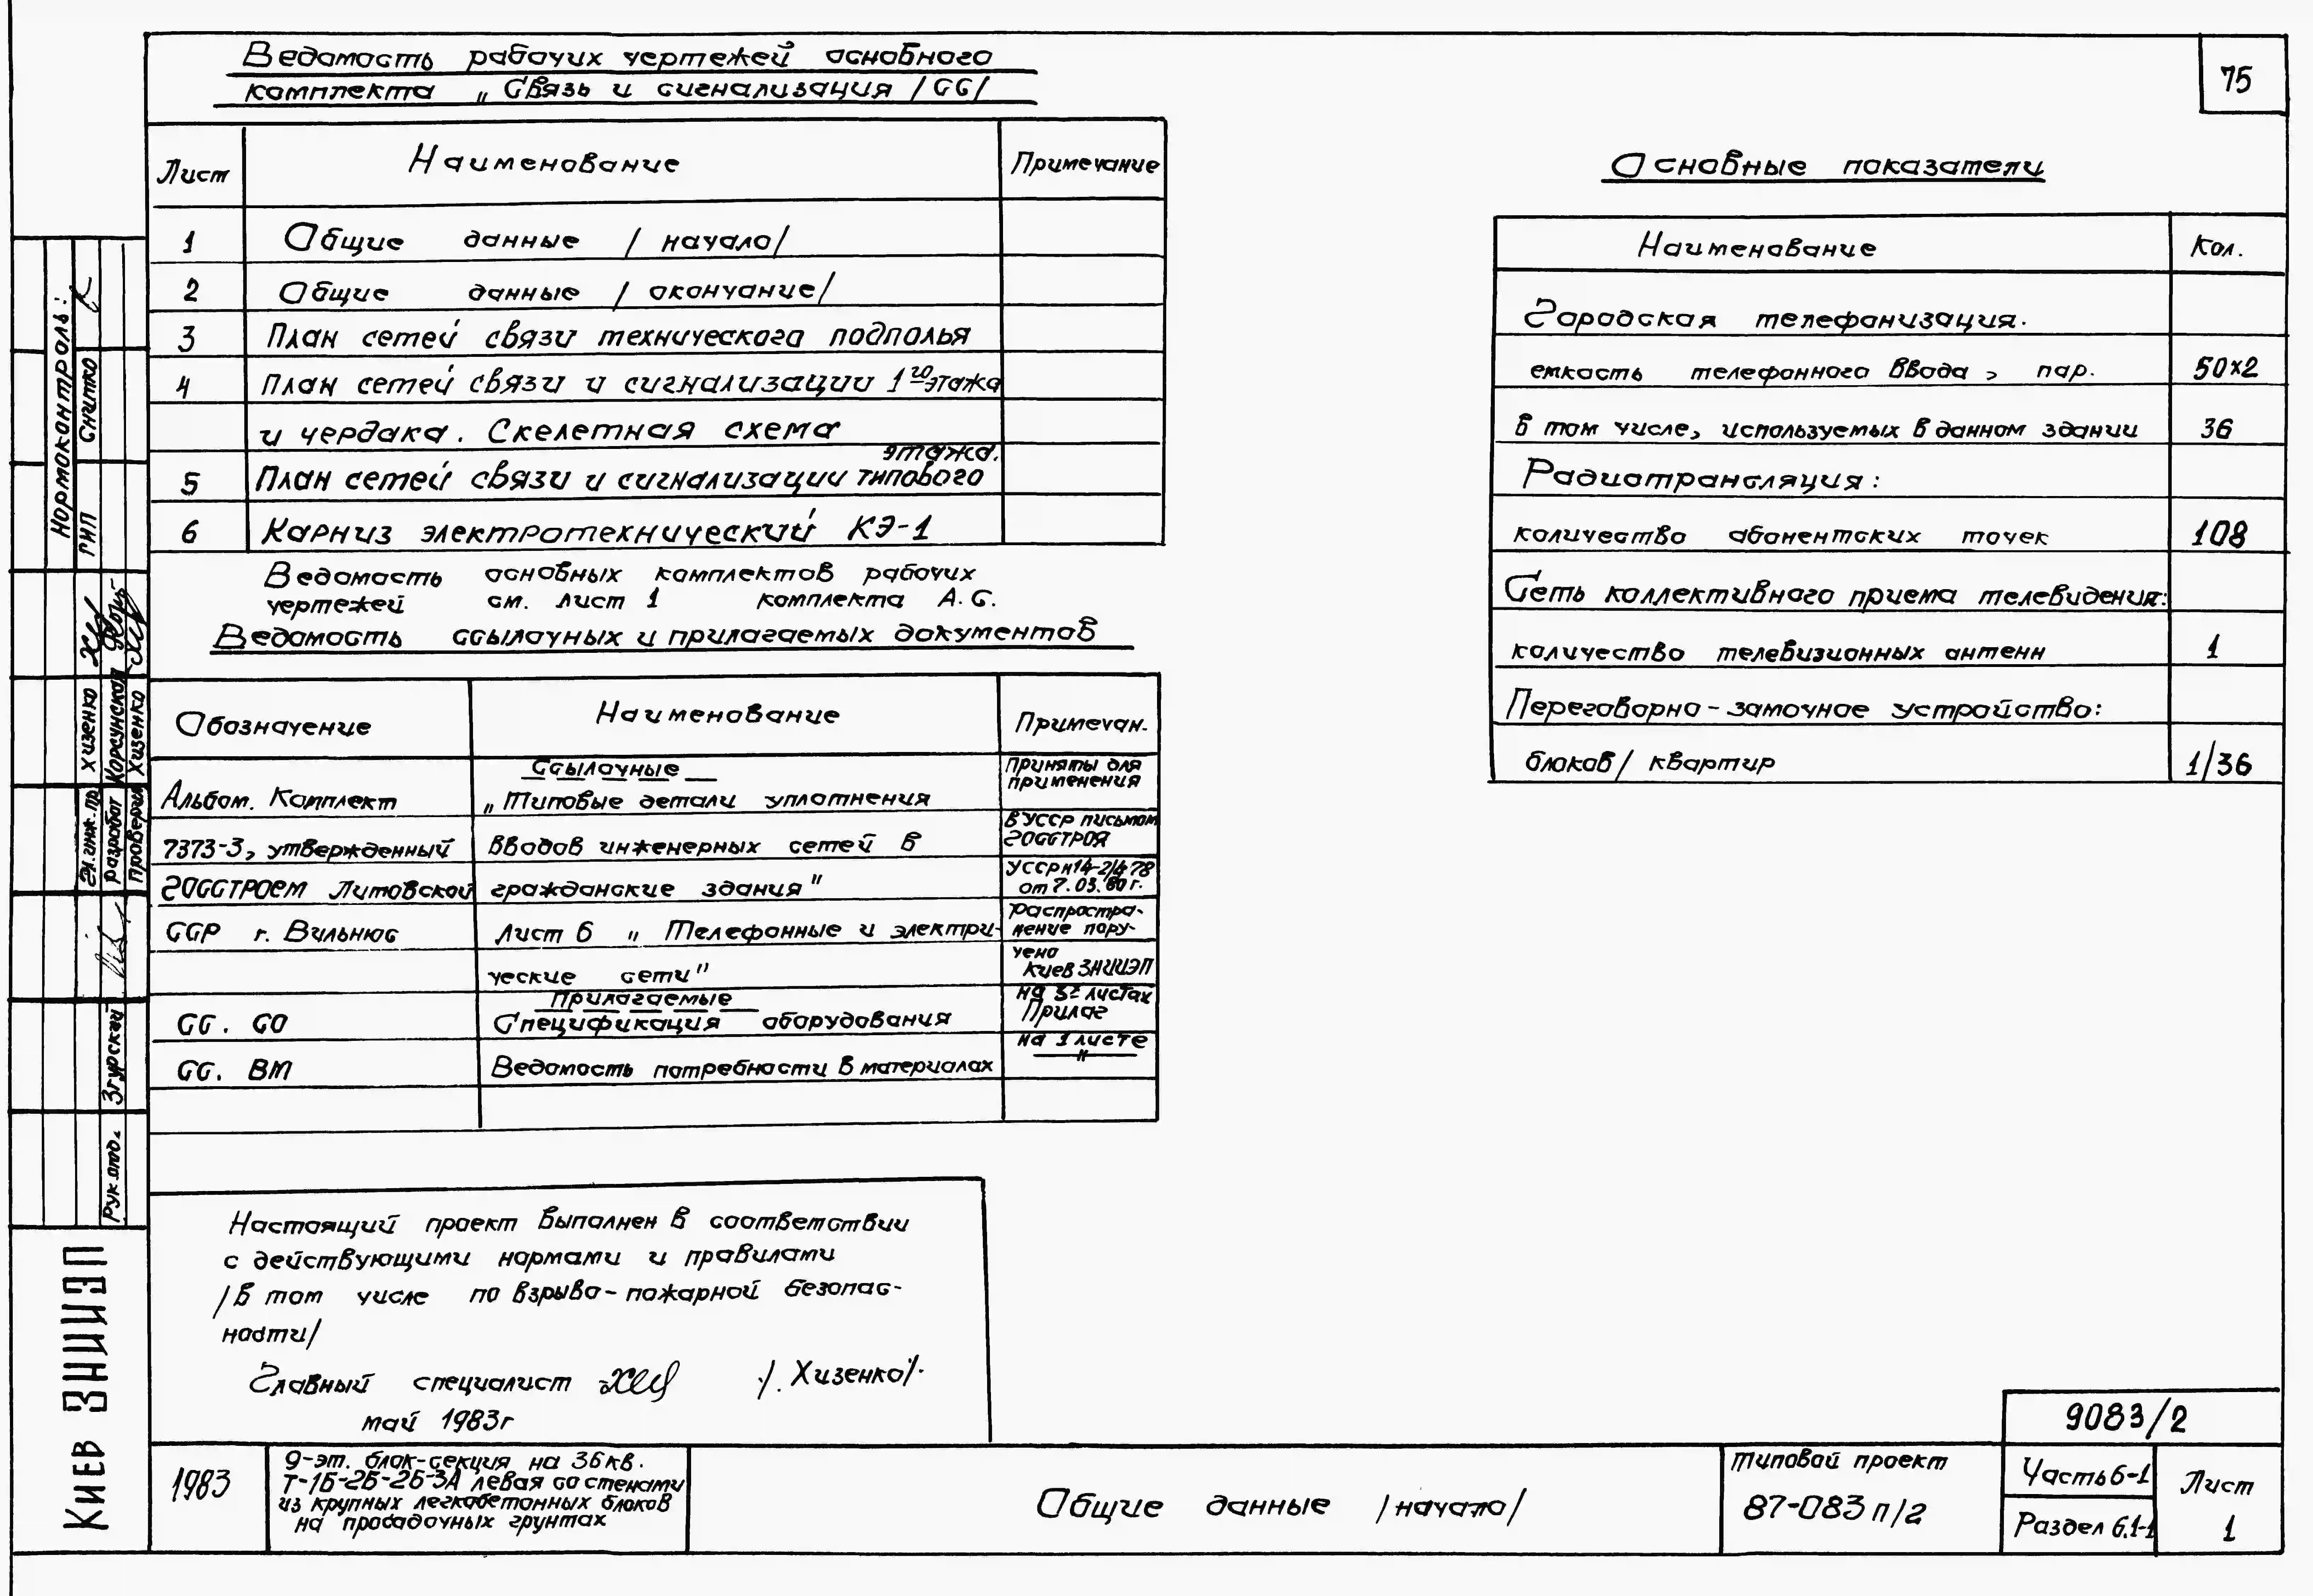 Ведомость рабочих чертежей основного
комплекта „Связь и сигнализация /СС/
75
Лист Наименование Примечание
1 Общие данные /начало/
2 Общие данные /окончание/
3 План сетей связи технического подполья
4 План сетей связи и сигнализации 1го этажа
и чердака. Скелетная схема
этажа.
5 План сетей связи и сигнализации типового
6 Карниз электротехнический КЭ-1
Ведомость основных комплектов рабочих
чертежей см. лист 1 комплекта А.С.
Ведомость ссылочных и прилагаемых документов
Обозначение Наименование Примечан.
Ссылочные Приняты для
применения
Альбом. Комплект „Типовые детали уплотнения
В УССР письмом
7373-3, утвержденный вводов инженерных сетей в ГОССТРОЯ
УССР №14-2/4-78
ГОССТРОЕМ Литовской гражданские здания" от 7.03.80г.
Распростра-
ССР г. Вильнюс Лист 6 „Телефонные и электри- нение пору-
чено
ческие сети" КиевЗНИИЭП
Прилагаемые на листах
СС. СО Спецификация оборудования Прилаг
на 1 листе
СС. ВМ Ведомость потребности в материалах "
Основные показатели
Наименование Кол.
Городская телефонизация.
емкость телефонного ввода, пар. 50×2
в том числе, используемых в данном здании 36
Радиотрансляция:
количество абонентских точек 108
Сеть коллективного приема телевидения:
количество телевизионных антенн 1
Переговорно-замочное устройство:
блоков/ квартир 1/36
Настоящий проект выполнен в соответствии
с действующими нормами и правилами
/в том числе по взрыво-пожарной безопас-
ности/
Главный специалист /. Хизенко/.
май 1983г
9083/2
1983
9-эт. блок-секция на 36кв.
Т-1Б-2Б-2Б-3А левая со стенами
из крупных легкобетонных блоков
на просадочных грунтах
Общие данные /начало/
Типовой проект
87-083п/2
Часть 6-1
Раздел 6.1-1
Лист
1
Нормоконтроль:
ГИП Снитко
Гл.инж.пр. Хизенко
разработ Корсунская
проверил Хизенко
Рук.апд. Згурский
Киев ЗНИИЭП